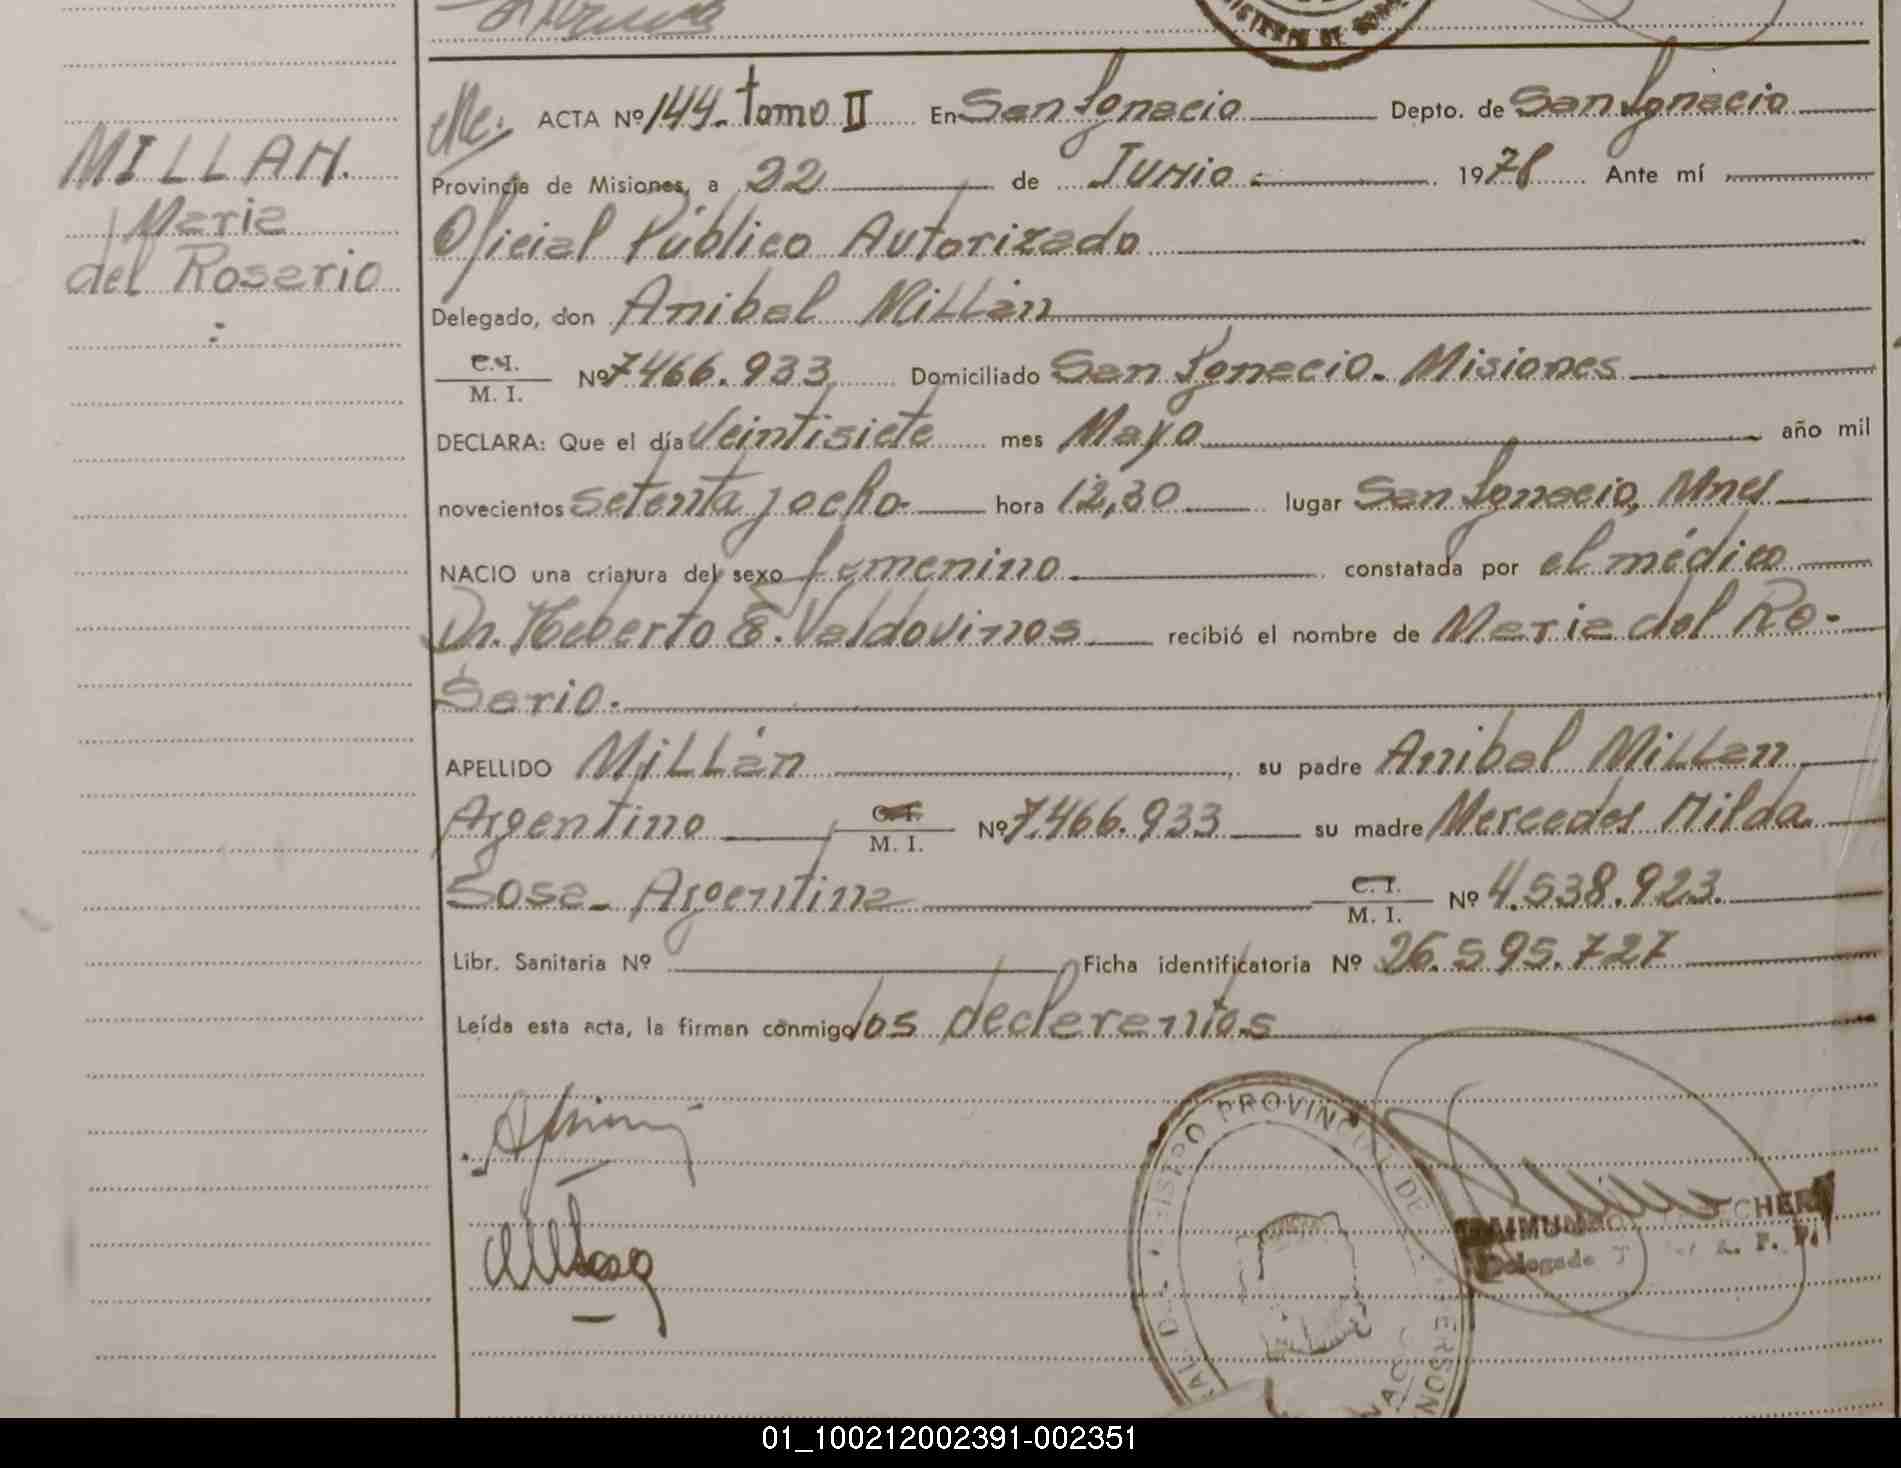 MILLAN.
Maria
del Rosario
:
ACTA Nº 144. tomo II En San Ignacio Depto. de San Ignacio
Provincia de Misiones, a 22 de Junio 1978 Ante mí
Oficial Público Autorizado
Delegado, don Anibal Millán
C.I. M. I. Nº 7466.933 Domiciliado San Ignacio. Misiones
DECLARA: Que el día Veintisiete mes Mayo año mil
novecientos setenta y ocho hora 12,30 lugar San Ignacio, Mnes
NACIO una criatura del sexo femenino constatada por el médico
Dr. Heberto E. Valdovinos recibió el nombre de Maria del Ro-
sario.
APELLIDO Millán su padre Anibal Millan
Argentino C.I. M. I. Nº 7.466.933 su madre Mercedes Nilda
Sosa - Argentina C. I. M. I. Nº 4.538.923.
Libr. Sanitaria Nº Ficha identificatoria Nº 26.595.727
Leída esta acta, la firman conmigo los declarantes
PROVINCIAL DE
RAIMUNDO
Delegado
01_100212002391-002351